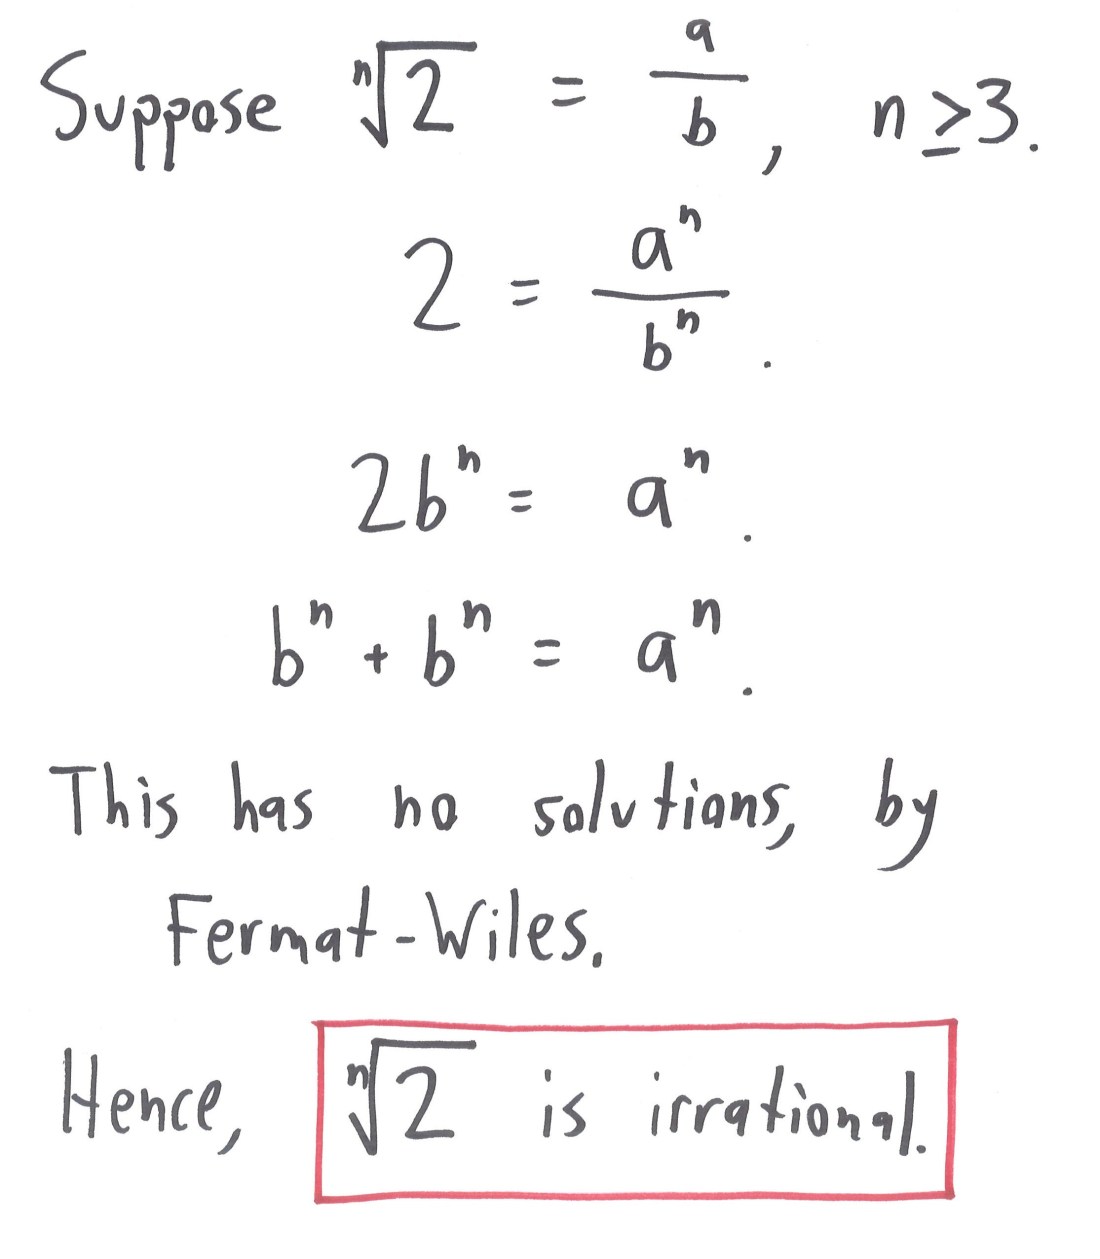 Suppose ⁿ√2 = a/b, n ≥ 3.
2 = aⁿ/bⁿ.
2bⁿ = aⁿ.
bⁿ + bⁿ = aⁿ.
This has no solutions, by
Fermat-Wiles.
Hence, ⁿ√2 is irrational.